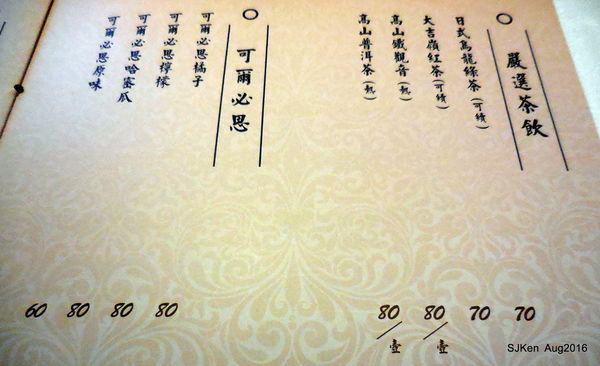 嚴選茶飲
日式烏龍綠茶(可續) 70
大吉嶺紅茶(可續) 70
高山鐵觀音(熱) 80/壺
高山普洱茶(熱) 80/壺
可爾必思
可爾必思橘子 80
可爾必思檸檬 80
可爾必思哈密瓜 80
可爾必思原味 60
SJKen Aug2016